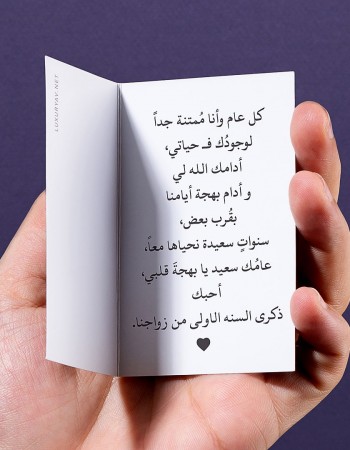 كل عام وأنا مُمتنة جداً
لوجودُك فـ حياتي،
أدامك الله لي
و أدام بهجة أيامنا
بقُرب بعض،
سنواتٍ سعيدة نحياها معاً،
عامُك سعيد يا بهجةَ قلبي،
أحبك
ذكرى السنه الاولى من زواجنا.